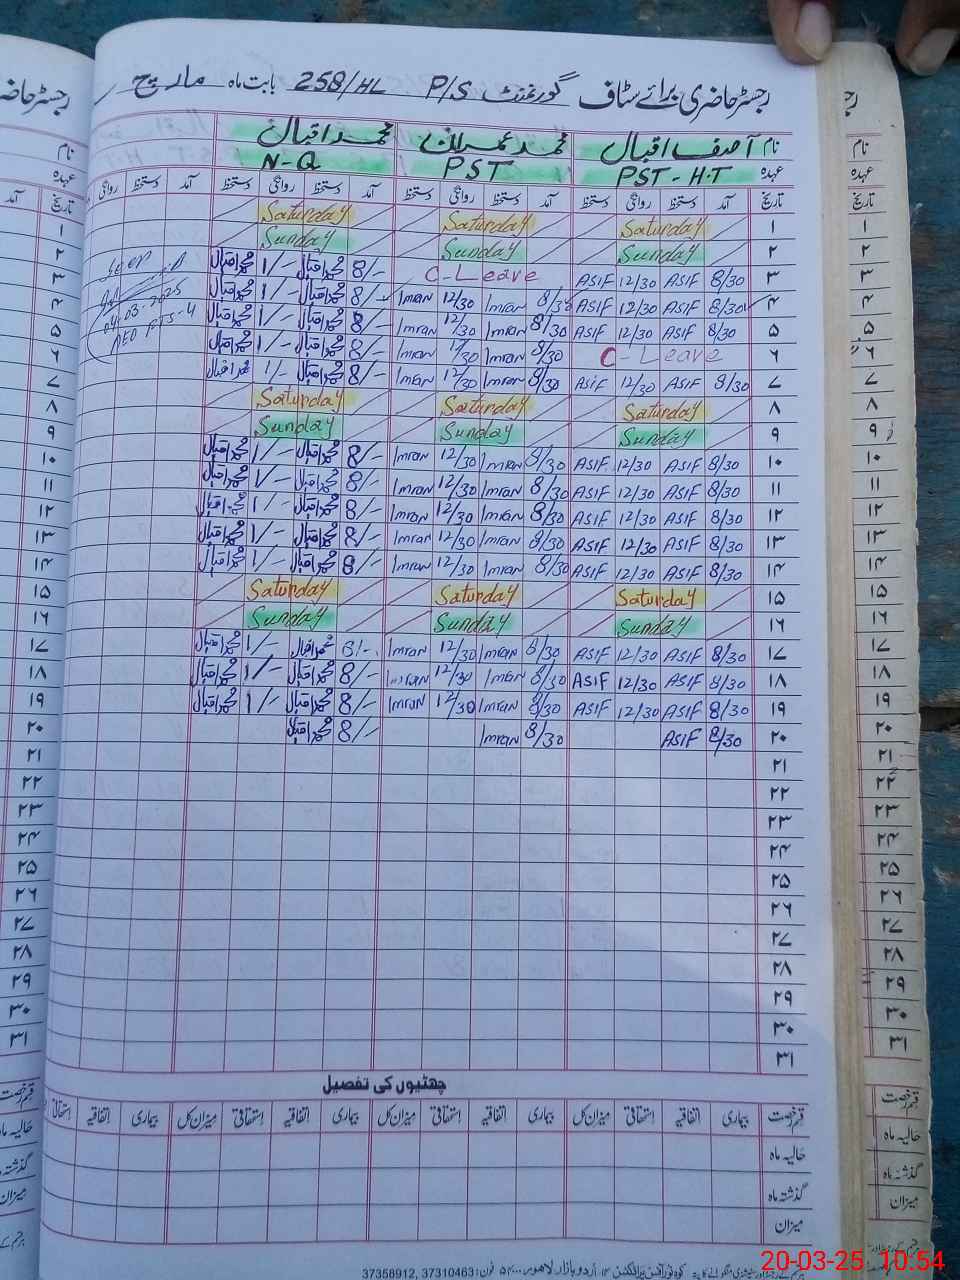 رجسٹر حاضری برائے سٹاف گورنمنٹ P/S 258/HL بابت ماہ مارچ
نام آصف اقبال محمد عمران محمد اقبال
عہدہ PST-H.T PST N-Q
تاریخ آمد دستخط روانگی دستخط آمد دستخط روانگی دستخط آمد دستخط روانگی دستخط آمد دستخط روانگی
۱ Saturday Saturday Saturday
۲ Sunday Sunday Sunday
۳ 8/30 ASIF 12/30 ASIF C-Leave 8/- محمد اقبال 1/- محمد اقبال
۴ 8/30 ASIF 12/30 ASIF 8/30 Imran 12/30 Imran 8/- محمد اقبال 1/- محمد اقبال 04-03-2025
۵ 8/30 ASIF 12/30 ASIF 8/30 Imran 12/30 Imran 8/- محمد اقبال 1/- محمد اقبال
۶ C-Leave 8/30 Imran 12/30 Imran 8/- محمد اقبال 1/- محمد اقبال
۷ 8/30 ASIF 12/30 ASIF 8/30 Imran 12/30 Imran 8/- محمد اقبال 1/- محمد اقبال
۸ Saturday Saturday Saturday
۹ Sunday Sunday Sunday
۱۰ 8/30 ASIF 12/30 ASIF 8/30 Imran 12/30 Imran 8/- محمد اقبال 1/- محمد اقبال
۱۱ 8/30 ASIF 12/30 ASIF 8/30 Imran 12/30 Imran 8/- محمد اقبال 1/- محمد اقبال
۱۲ 8/30 ASIF 12/30 ASIF 8/30 Imran 12/30 Imran 8/- محمد اقبال 1/- محمد اقبال
۱۳ 8/30 ASIF 12/30 ASIF 8/30 Imran 12/30 Imran 8/- محمد اقبال 1/- محمد اقبال
۱۴ 8/30 ASIF 12/30 ASIF 8/30 Imran 12/30 Imran 8/- محمد اقبال 1/- محمد اقبال
۱۵ Saturday Saturday Saturday
۱۶ Sunday Sunday Sunday
۱۷ 8/30 ASIF 12/30 ASIF 8/30 Imran 12/30 Imran 8/- محمد اقبال 1/- محمد اقبال
۱۸ 8/30 ASIF 12/30 ASIF 8/30 Imran 12/30 Imran 8/- محمد اقبال 1/- محمد اقبال
۱۹ 8/30 ASIF 12/30 ASIF 8/30 Imran 12/30 Imran 8/- محمد اقبال 1/- محمد اقبال
۲۰ 8/30 ASIF 8/30 Imran 8/- محمد اقبال
۲۱
۲۲
۲۳
۲۴
۲۵
۲۶
۲۷
۲۸
۲۹
۳۰
۳۱
چھٹیوں کی تفصیل
قسم رخصت بیماری اتفاقیہ استحقاقی میزان کل بیماری اتفاقیہ استحقاقی میزان کل بیماری اتفاقیہ استحقاقی میزان کل بیماری اتفاقیہ استحقاقی
حالیہ ماہ
گذشتہ ماہ
میزان
اردو بازار لاہور فون: 37310463, 37358912
20-03-25 10:54